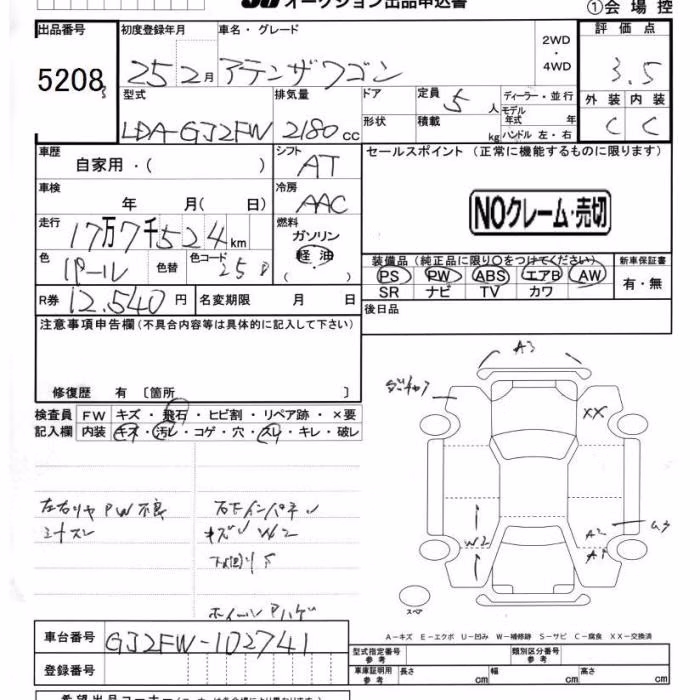 オークション出品申込書
①会場控
出品番号
5208
初度登録年月
25 2月
車名・グレード
アテンザワゴン
2WD
・
4WD
評価点
3.5
外装 内装
C C
型式
LDA-GJ2FW
排気量
2180cc
ドア
形状
定員 5人
積載 kg
ディーラー・並行
モデル年式 年
ハンドル 左・右
車歴
自家用・( )
シフト
AT
セールスポイント (正常に機能するものに限ります)
NOクレーム・売切
車検
年 月( 日)
冷房
AAC
走行
17万7千524km
燃料
ガソリン
軽油
( )
色
パール
色替
色コード
25D
装備品(純正品に限り〇をつけてください)
PS PW ABS エアB AW
SR ナビ TV カワ
新車保証書
有・無
R券 12,540円
名変期限 月 日
後日品
注意事項申告欄(不具合内容等は具体的に記入して下さい)
修復歴 有 〔箇所 〕
検査員記入欄
FW キズ・飛石・ヒビ割・リペア跡・×要
内装 キズ・汚レ・コゲ・穴・スレ・キレ・破レ
左右リヤPW不良
シートスレ
キズ W2
A3
XX
W2
A2
A1
スペア
A-キズ E-エクボ U-凹み W-補修跡 S-サビ C-腐食 XX-交換済
車台番号
GJ2FW-102741
登録番号
型式指定番号
参考
類別区分番号
参考
車庫証明用
参考
長さ cm
幅 cm
高さ cm
希望出品コーナー